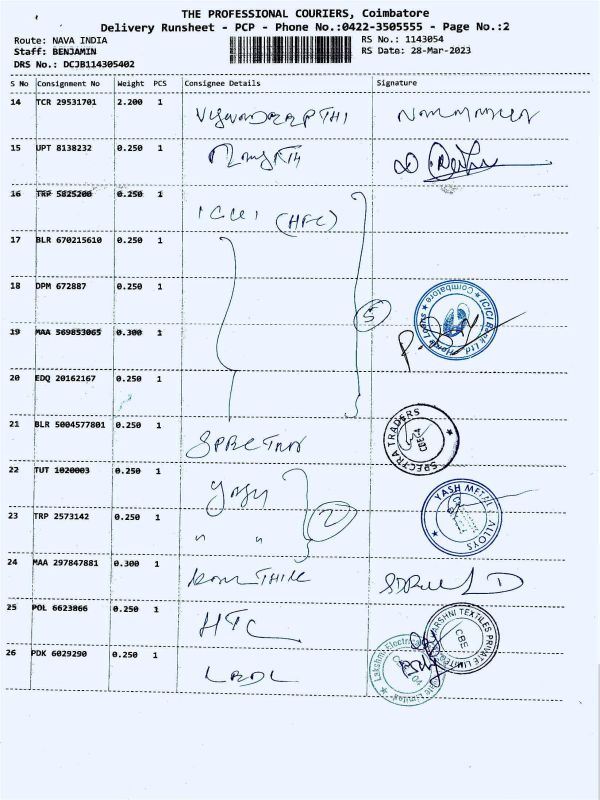 THE PROFESSIONAL COURIERS, Coimbatore
Delivery Runsheet - PCP - Phone No.:0422-3505555 - Page No.:2
Route: NAVA INDIA
RS No.: 1143054
Staff: BENJAMIN
RS Date: 28-Mar-2023
DRS No.: DCJB114305402
S No Consignment No Weight PCS Consignee Details Signature
14 TCR 29531701 2.200 1
15 UPT 8138232 0.250 1
16 TRP 5825200 0.250 1 ICICI (HFC)
17 BLR 670215610 0.250 1
18 DPM 672887 0.250 1
ICICI Bank Ltd Home Loans Coimbatore
5
19 MAA 569853065 0.300 1
20 EDQ 20162167 0.250 1
21 BLR 5004577801 0.250 1
SPECTRA TRADERS
22 TUT 1020003 0.250 1
2
YASH METAL ALLOYS
23 TRP 2573142 0.250 1 " "
24 MAA 297847881 0.300 1
25 POL 6623866 0.250 1 HTC
VARSHNI TEXTILES PRIVATE LIMITED
CBE
26 PDK 6029290 0.250 1
Lakshmi Electrical